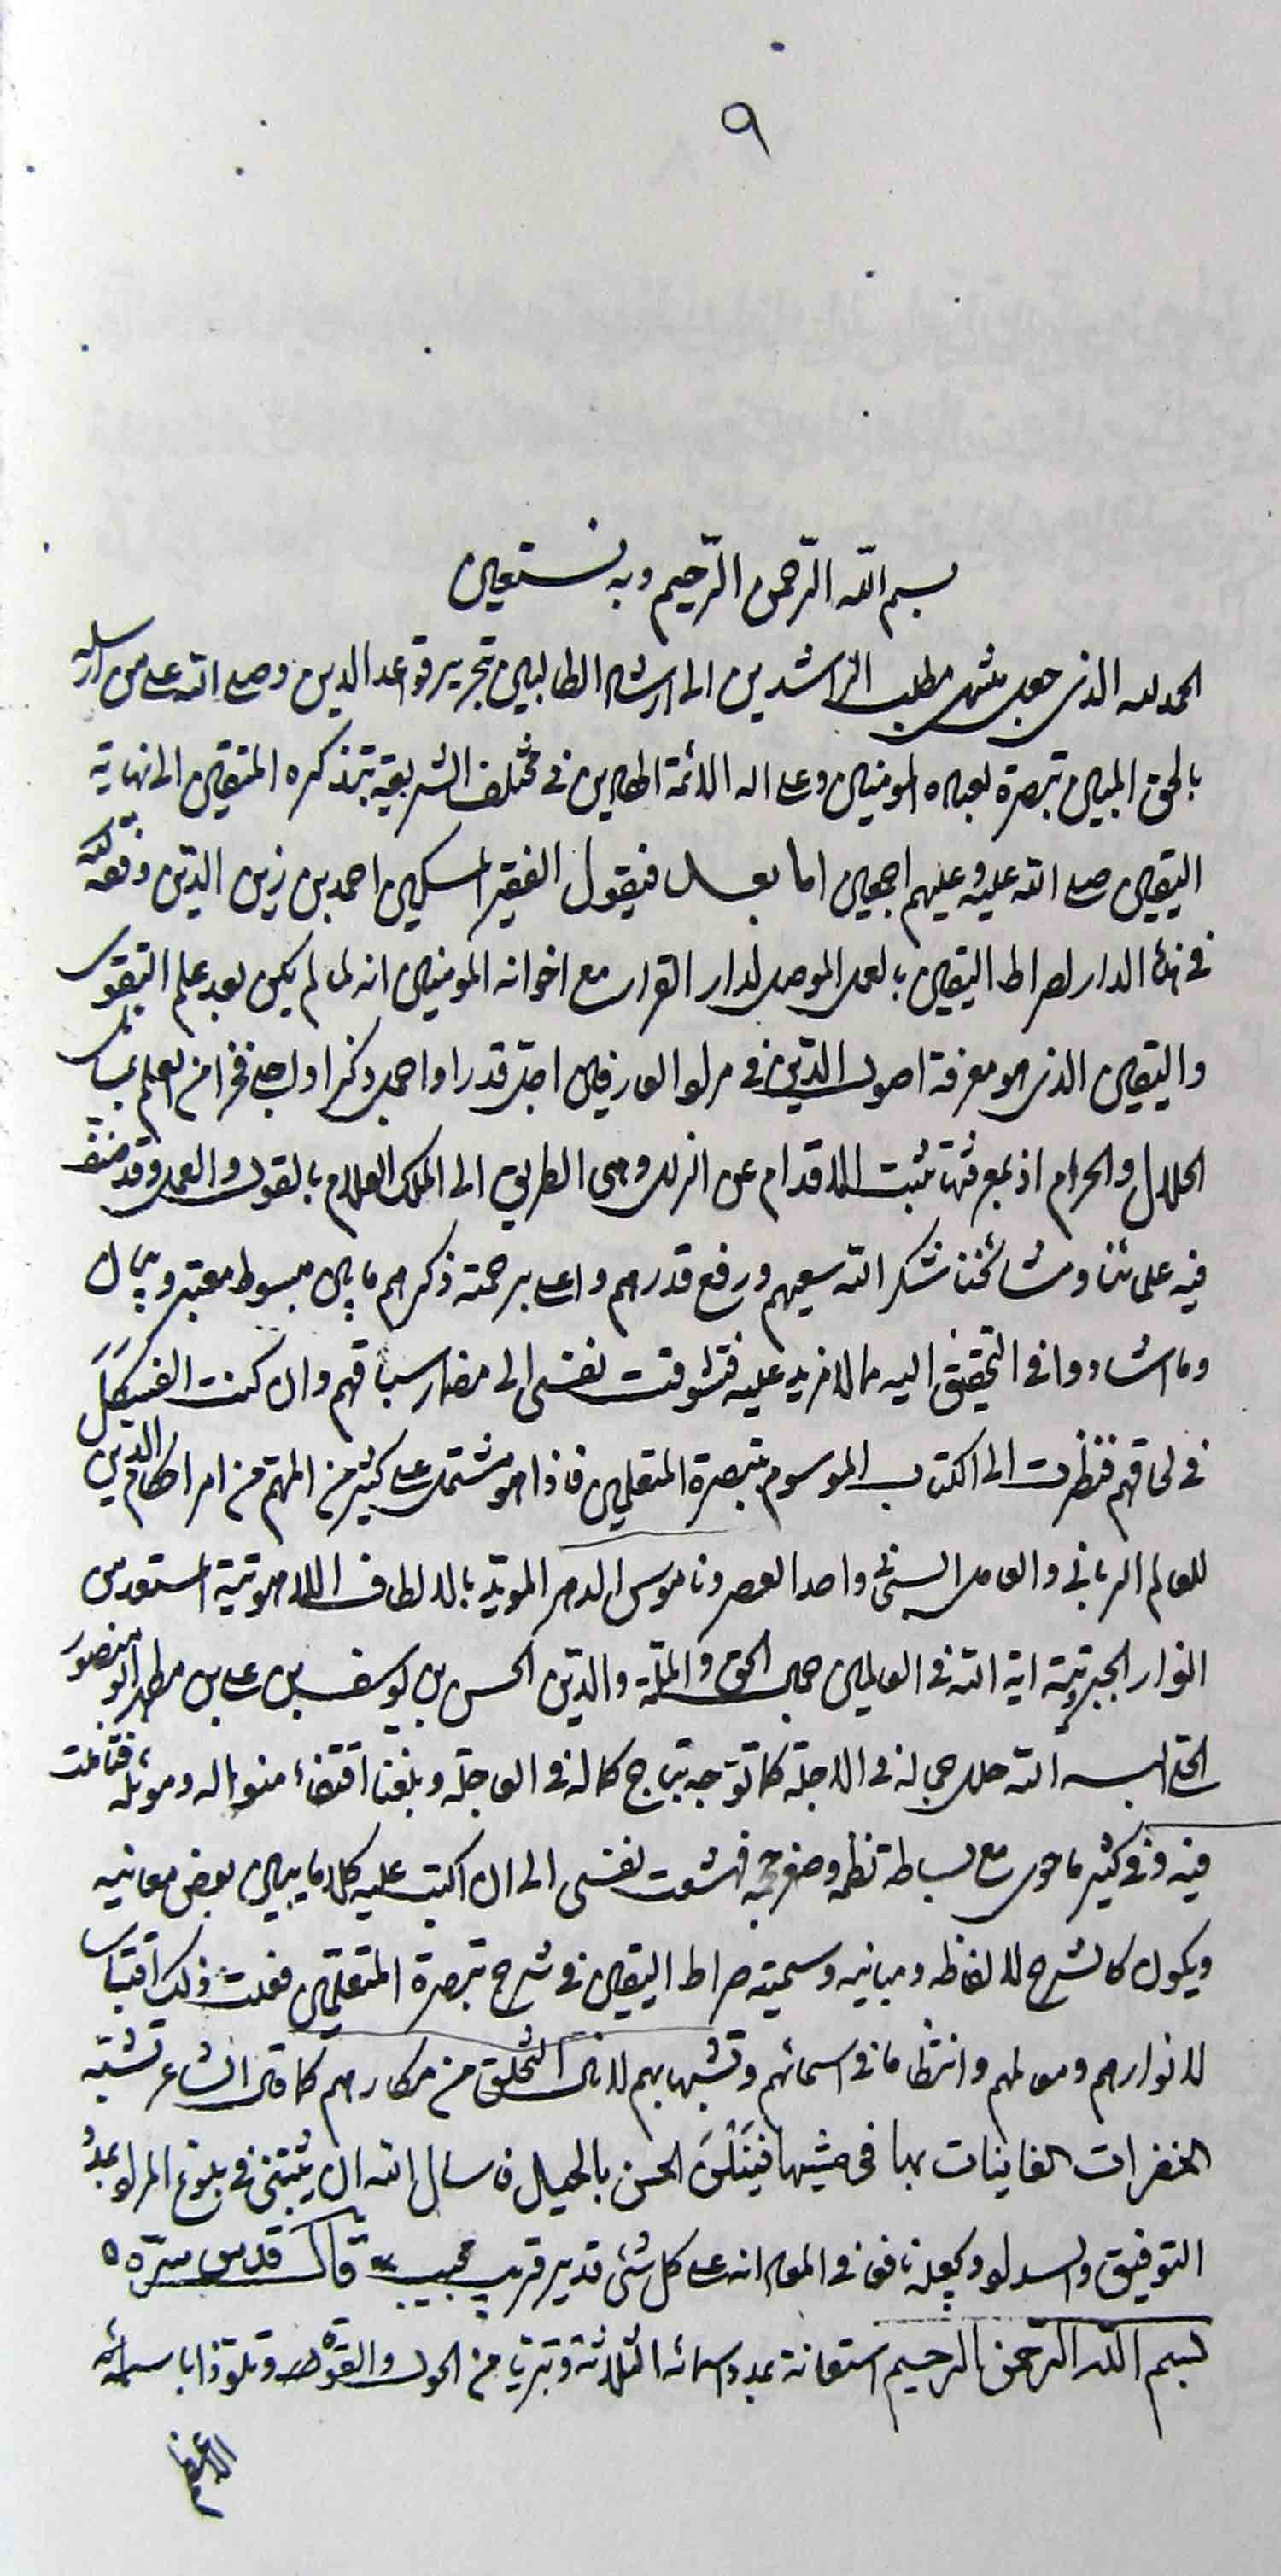 ٩
بسم الله الرّحمن الرّحيم وبه نستعين
الحمد لله الذى جعل منتهى مطلب الراشدين الى ارشاد الطالبين تحرير قواعد الدين وصلى الله على من ارسله
بالحق المبين تبصرة لعباده المومنين وعلى اله الائمة الطاهرين فى مختلف الشريعة بتذكره المتقين الى نهاية
اليقين صلى الله عليه وعليهم اجمعين اما بعد فيقول الفقير المسكين احمد بن زين الدين وفقه الله
فى هذه الدار لصراط اليقين بالعمل الموصل لدار القرار مع اخوانه المومنين انه لما لم يكن بعد علم التقوى
واليقين الذى هو معرفة اصول الدّين فى مراد العارفين اجلّ قدرا واجمل ذكرا ولا اعلى فخرا من العلم بمسائل
الحلال والحرام اذ بمعرفتها تثبت الاقدام عن الزلل وهى الطريق الى الملك العلام بالقول والعمل وقد صنّف
فيه علمائنا ومشائخنا شكر الله سعيهم ورفع قدرهم واعلى برحمته ذكرهم ما بين مبسوط معتبر وبيان
وما اشادوا فى التحقيق اليه مما لا مزيد عليه فتشوقت نفسى الى مضمار سباقهم وان كنت الفسكل
فى لحاقهم فنظرت الى الكتاب الموسوم بتبصرة المتعلمين فاذا هو مشتمل على كثير من المهمّ من امر احكام الدّين
للعالم الربانى والعامل السنى واحد العصر وناموس الدهر المويّد بالالطاف اللاهوتية المستمد من
انوار الجبروتية اية الله فى العالمين جمال الحق والملّة والدّين الحسن بن يوسف بن على بن مطهر ابو منصور
الحلى البسه الله حلل جماله فى الاجلة كما توّجه بتاج كماله فى العاجلة وبلغنا اقتفاء منواله وموئله فتاملت
فيه وفى كثير ما حوى مع بساطة نظمه وصغر حجمه فهشّت نفسى الى ان اكتب عليه كلاما يبين بعض معانيه
ويكون كالشرح لالفاظه ومبانيه وسميته صراط اليقين فى شرح تبصرة المتعلّمين ففعلت ذلك اقتباسا
لانوارهم ومعالمهم وانتظاما فى اسمائهم وتشبها بهم لانال التخلق من مكارمهم كما قال الشاعر تشبّه
الخفرات الغانيات بها فى مشيها فينلن الحسن بالحيل فاسال الله ان يثبتنى فى بلوغ المراد بمدد
التوفيق والسداد ويجعله نافعا فى المعاد انه على كل شئ قدير قريب مجيب قال قدس سرّه
بسم الله الرّحمن الرحيم استعانة بمدد اسمائه الثلاثة وتبرّيا من الحول والقوة وتلوّذا باسمائه
الاعظم